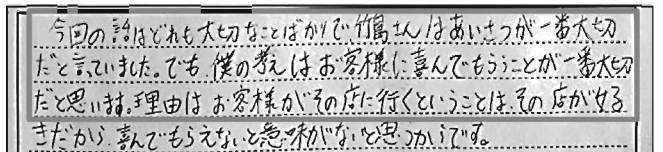 今回の話はどれも大切なことばかりで竹島さんはあいさつが一番大切
だと言っていました。でも、僕の考えはお客様に喜んでもらうことが一番大切
だと思います。理由はお客様がその店に行くということは、その店が好
きだから、喜んでもらえないと意味がないと思うからです。